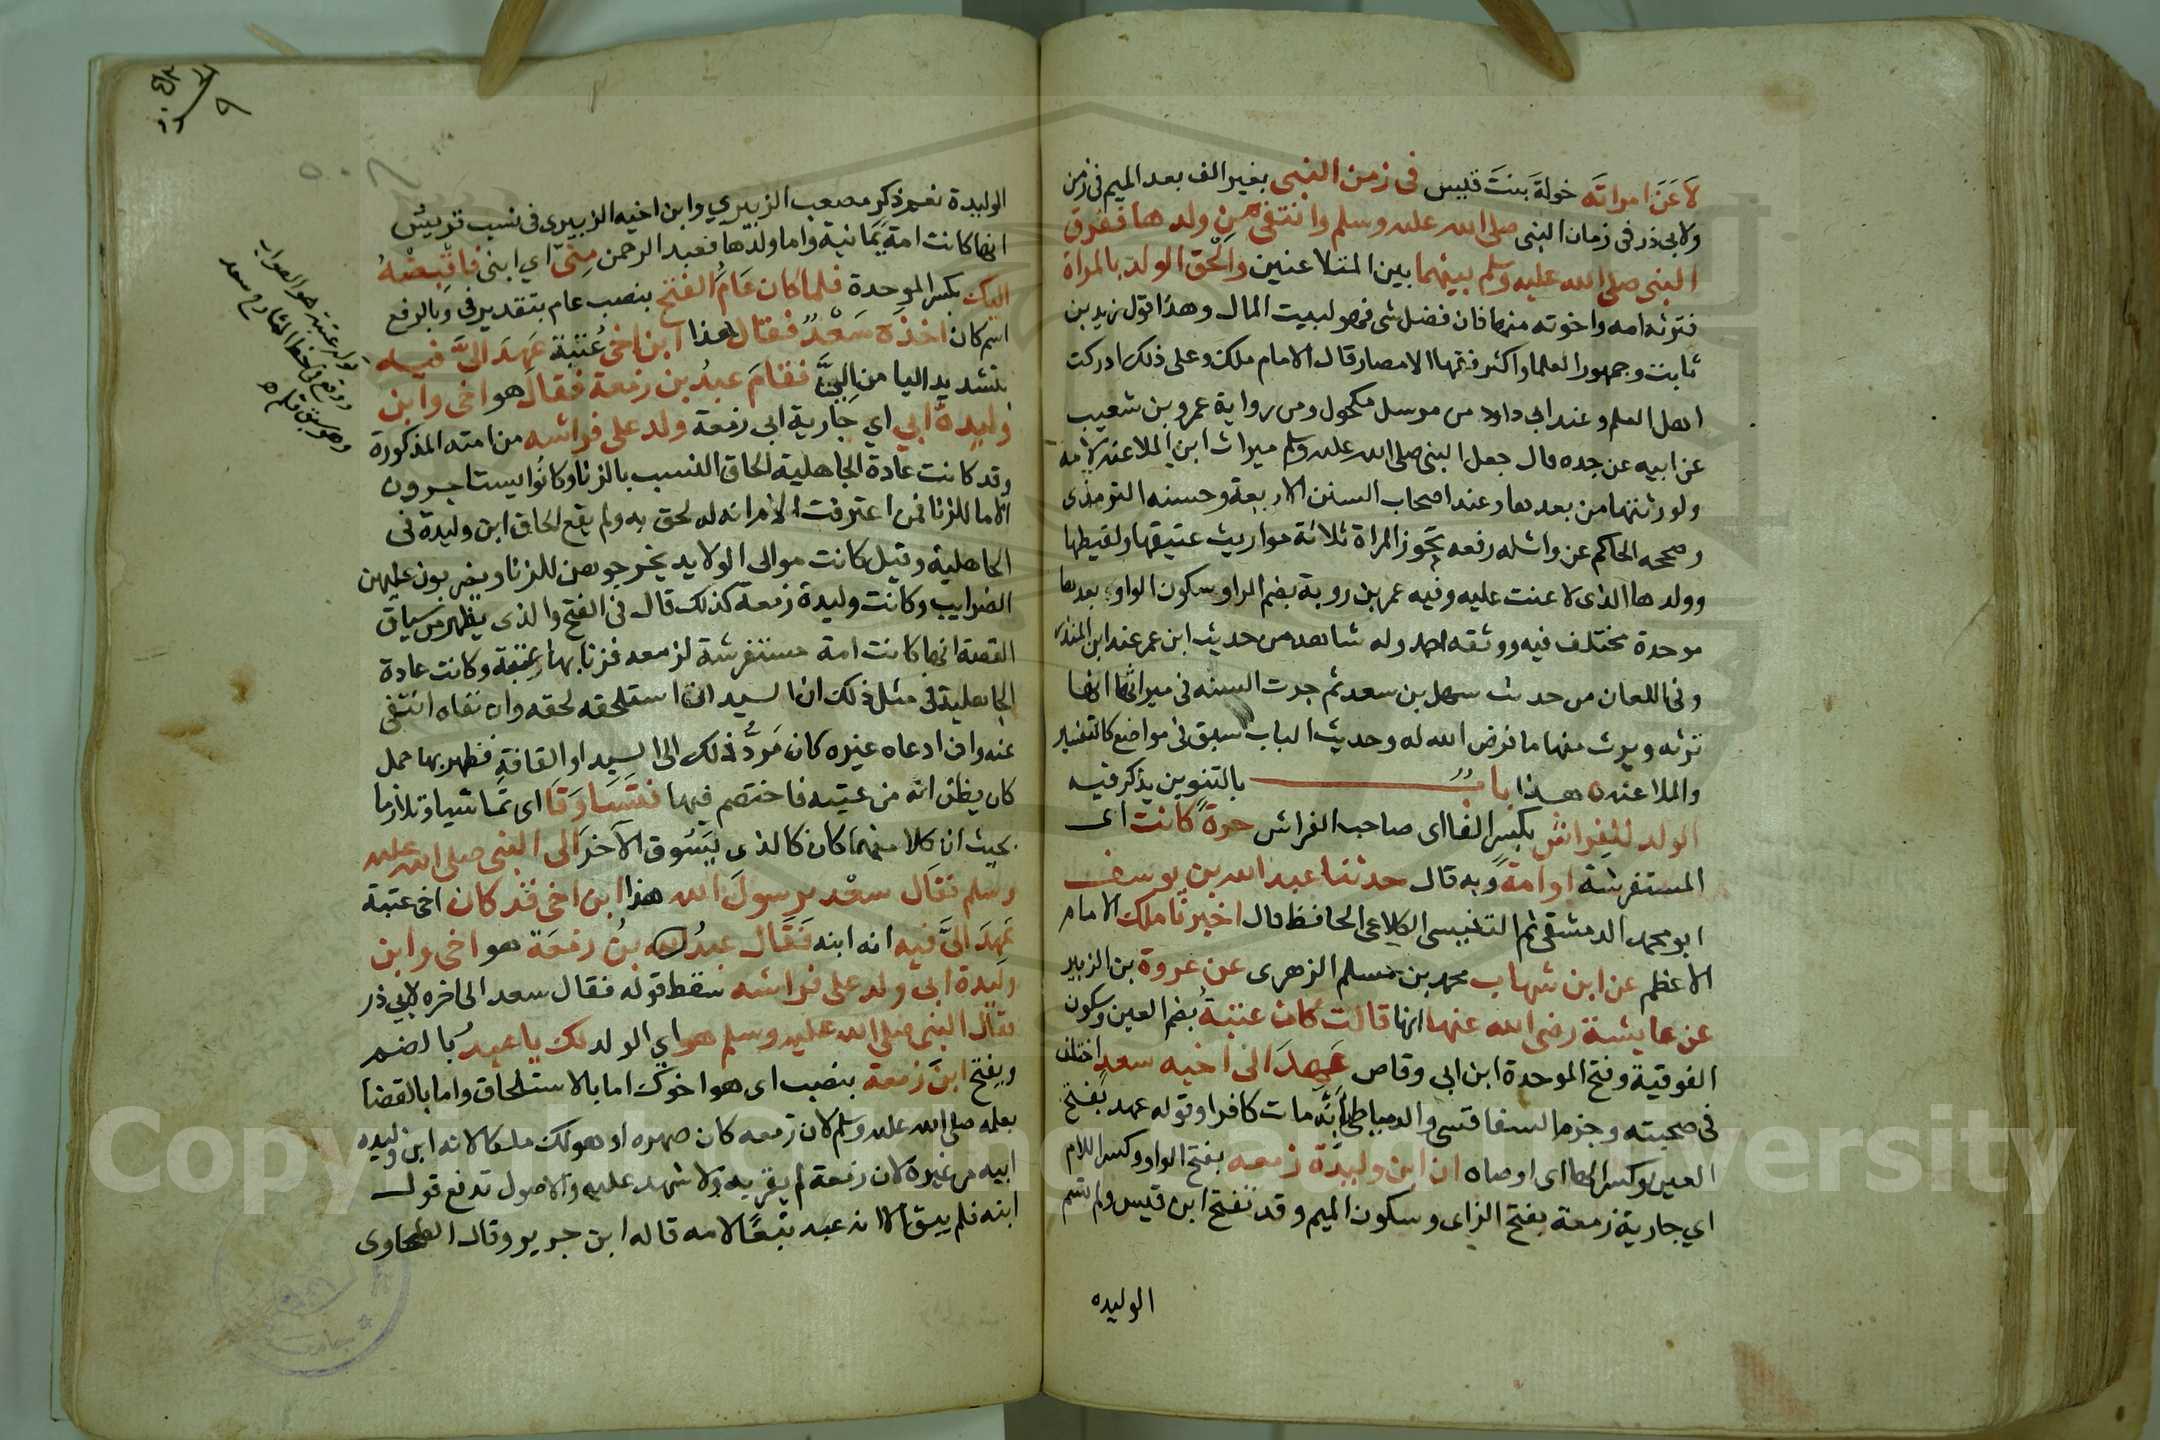 لَاعَنَ امراتَه خولةَ بنتَ قيس في زمن النبي بغير الف بعد الميم في زمن
ولابي ذر في زمان النبي صلى الله عليه وسلم وانتفى من ولدها ففرق
النبي صلى الله عليه وسلم بينهما بين المتلاعنين والحق الولد بالمراة
فترثه امه واخوته منها فان فضل شي فهو لبيت المال وهذا قول زيد بن
ثابت وجمهور العلما واكثر فقها الامصار قال الامام ملك وعلى ذلك ادركت
اهل العلم وعند ابي داود من مرسل مكحول ومن رواية عمرو بن شعيب
عن ابيه عن جده قال جعل النبي صلى الله عليه وسلم ميراث ابن الملاعنة لامه
ولورثتها من بعدها وعند اصحاب السنن الاربعة وحسنه الترمذي
وصححه الحاكم عن واثله رفعه تحوز المراة ثلاثة مواريث عتيقها ولقيطها
وولدها الذي لاعنت عليه وفيه عمر بن روبة بضم الرا وسكون الواو بعدها
موحدة مختلف فيه ووثقه احمد وله شاهد من حديث ابن عمر عند ابن المنذر
وفي اللعان من حديث سهل بن سعد ثم جرت السنه في ميراثها انها
ترثه ويرث منها ما فرض الله له وحديث الباب سبق في مواضع كالتفسير
والملاعنه هذا بابٌ بالتنوين يذكر فيه
الولد للفراش بكسر الفا اي صاحب الفراش حرةً كانت اي
المستفرشة او امةً وبه قال حدثنا عبد الله بن يوسف
ابو محمد الدمشقي ثم التنيسي الكلاعي الحافظ قال اخبرنا ملك الامام
الاعظم عن ابن شهاب محمد بن مسلم الزهري عن عروة بن الزبير
عن عايشة رضي الله عنها انها قالت كان عتبةُ بضم العين وسكون
الفوقية وفتح الموحدة ابن ابي وقاص عَهِدَ الى اخيه سعدٍ اختلف
في صحبته وجزم السفاقسي والدمياطي بأنه مات كافرا وقوله عهد بفتح
العين وكسر الها اي اوصاه ان ابن وليدة زمعه بفتح الواو وكسر اللام
اي جارية زمعة بفتح الزاي وسكون الميم وقد تفتح ابن قيس ولم تسم
الوليده
الوليدة نعم ذكر مصعب الزبيري وابن اخيه الزبيري في نسب قريش
انها كانت امة يمانية واما ولدها فعبد الرحمن مِنِّي اي ابني فاقبِضْهُ
اليك بكسر الموحدة فلما كان عَامَُ الفتح بنصب عام بتقدير في وبالرفع
اسم كان اخذه سَعْدٌ فقال هذا ابن اخي عُتبة عَهِدَ اليَّ فيه
بتشديد اليا من اليَّ فقام عبدُ بن زمعة فقال هو اخي وابن
وليدة ابي اي جارية ابي زمعة ولد على فراشه من امته المذكورة
وقد كانت عادة الجاهلية الحاق النسب بالزنا وكانُوا يستاجرون
الاما للزنا فمن اعترفت الام انه له لحق به ولم يقع الحاق ابن وليدة في
الجاهلية وقيل كانت موالي الولايد يخرجوهن للزنا ويضربون عليهن
الضرايب وكانت وليدة زمعة كذلك قال في الفتح والذي يظهر من سياق
القصة انها كانت امة مستفرشة لزمعه فزنا بها عتبة وكانت عادة
الجاهلية في مثل ذلك ان السيد اذا استلحقه لحقه وان نفاه انتفى
عنه وان ادعاه غيره كان مَرَدُّ ذلك الى السيد او القافةِ فظهر بها حمل
كان يظن انه من عتبه فاختصم فيها فتَسَاوَقا اي تماشيا وتلازما
بحيث ان كلا منهما كان كالذي يَسُوق الآخَر الى النبي صلى الله عليه
وسلم فقال سعد يرسولَ الله هذا ابن اخي قد كان اخي عتبة
عَهِدَ اليَّ فيه انه ابنه فقَال عبدُ الله بنُ زمعَة هو اخي وابن
وليدة ابي ولد على فراشه سقط قوله فقال سعد الى اخره لابي ذر
فقال النبي صلى الله عليه وسلم هو اي الولد لك يا عبدُ بالضم
ويفتح ابنَ زمعة بنصب اي هو اخوك اما بالاستلحاق واما بالقضا
بعلمه صلى الله عليه وسلم لان زمعه كان صهره او هو لك ملكا لانه ابن وليده
ابيه من غيره لان زمعة لم يقربه ولا شهد عليه والاصول تدفع قول
ابنه فلم يبق الا انه عبد تبعًا لامه قاله ابن جرير وقال الطحاوي
قوله عتبة هو الصواب
ووقع في خط الشارح سعد
وهو سبق قلم اه